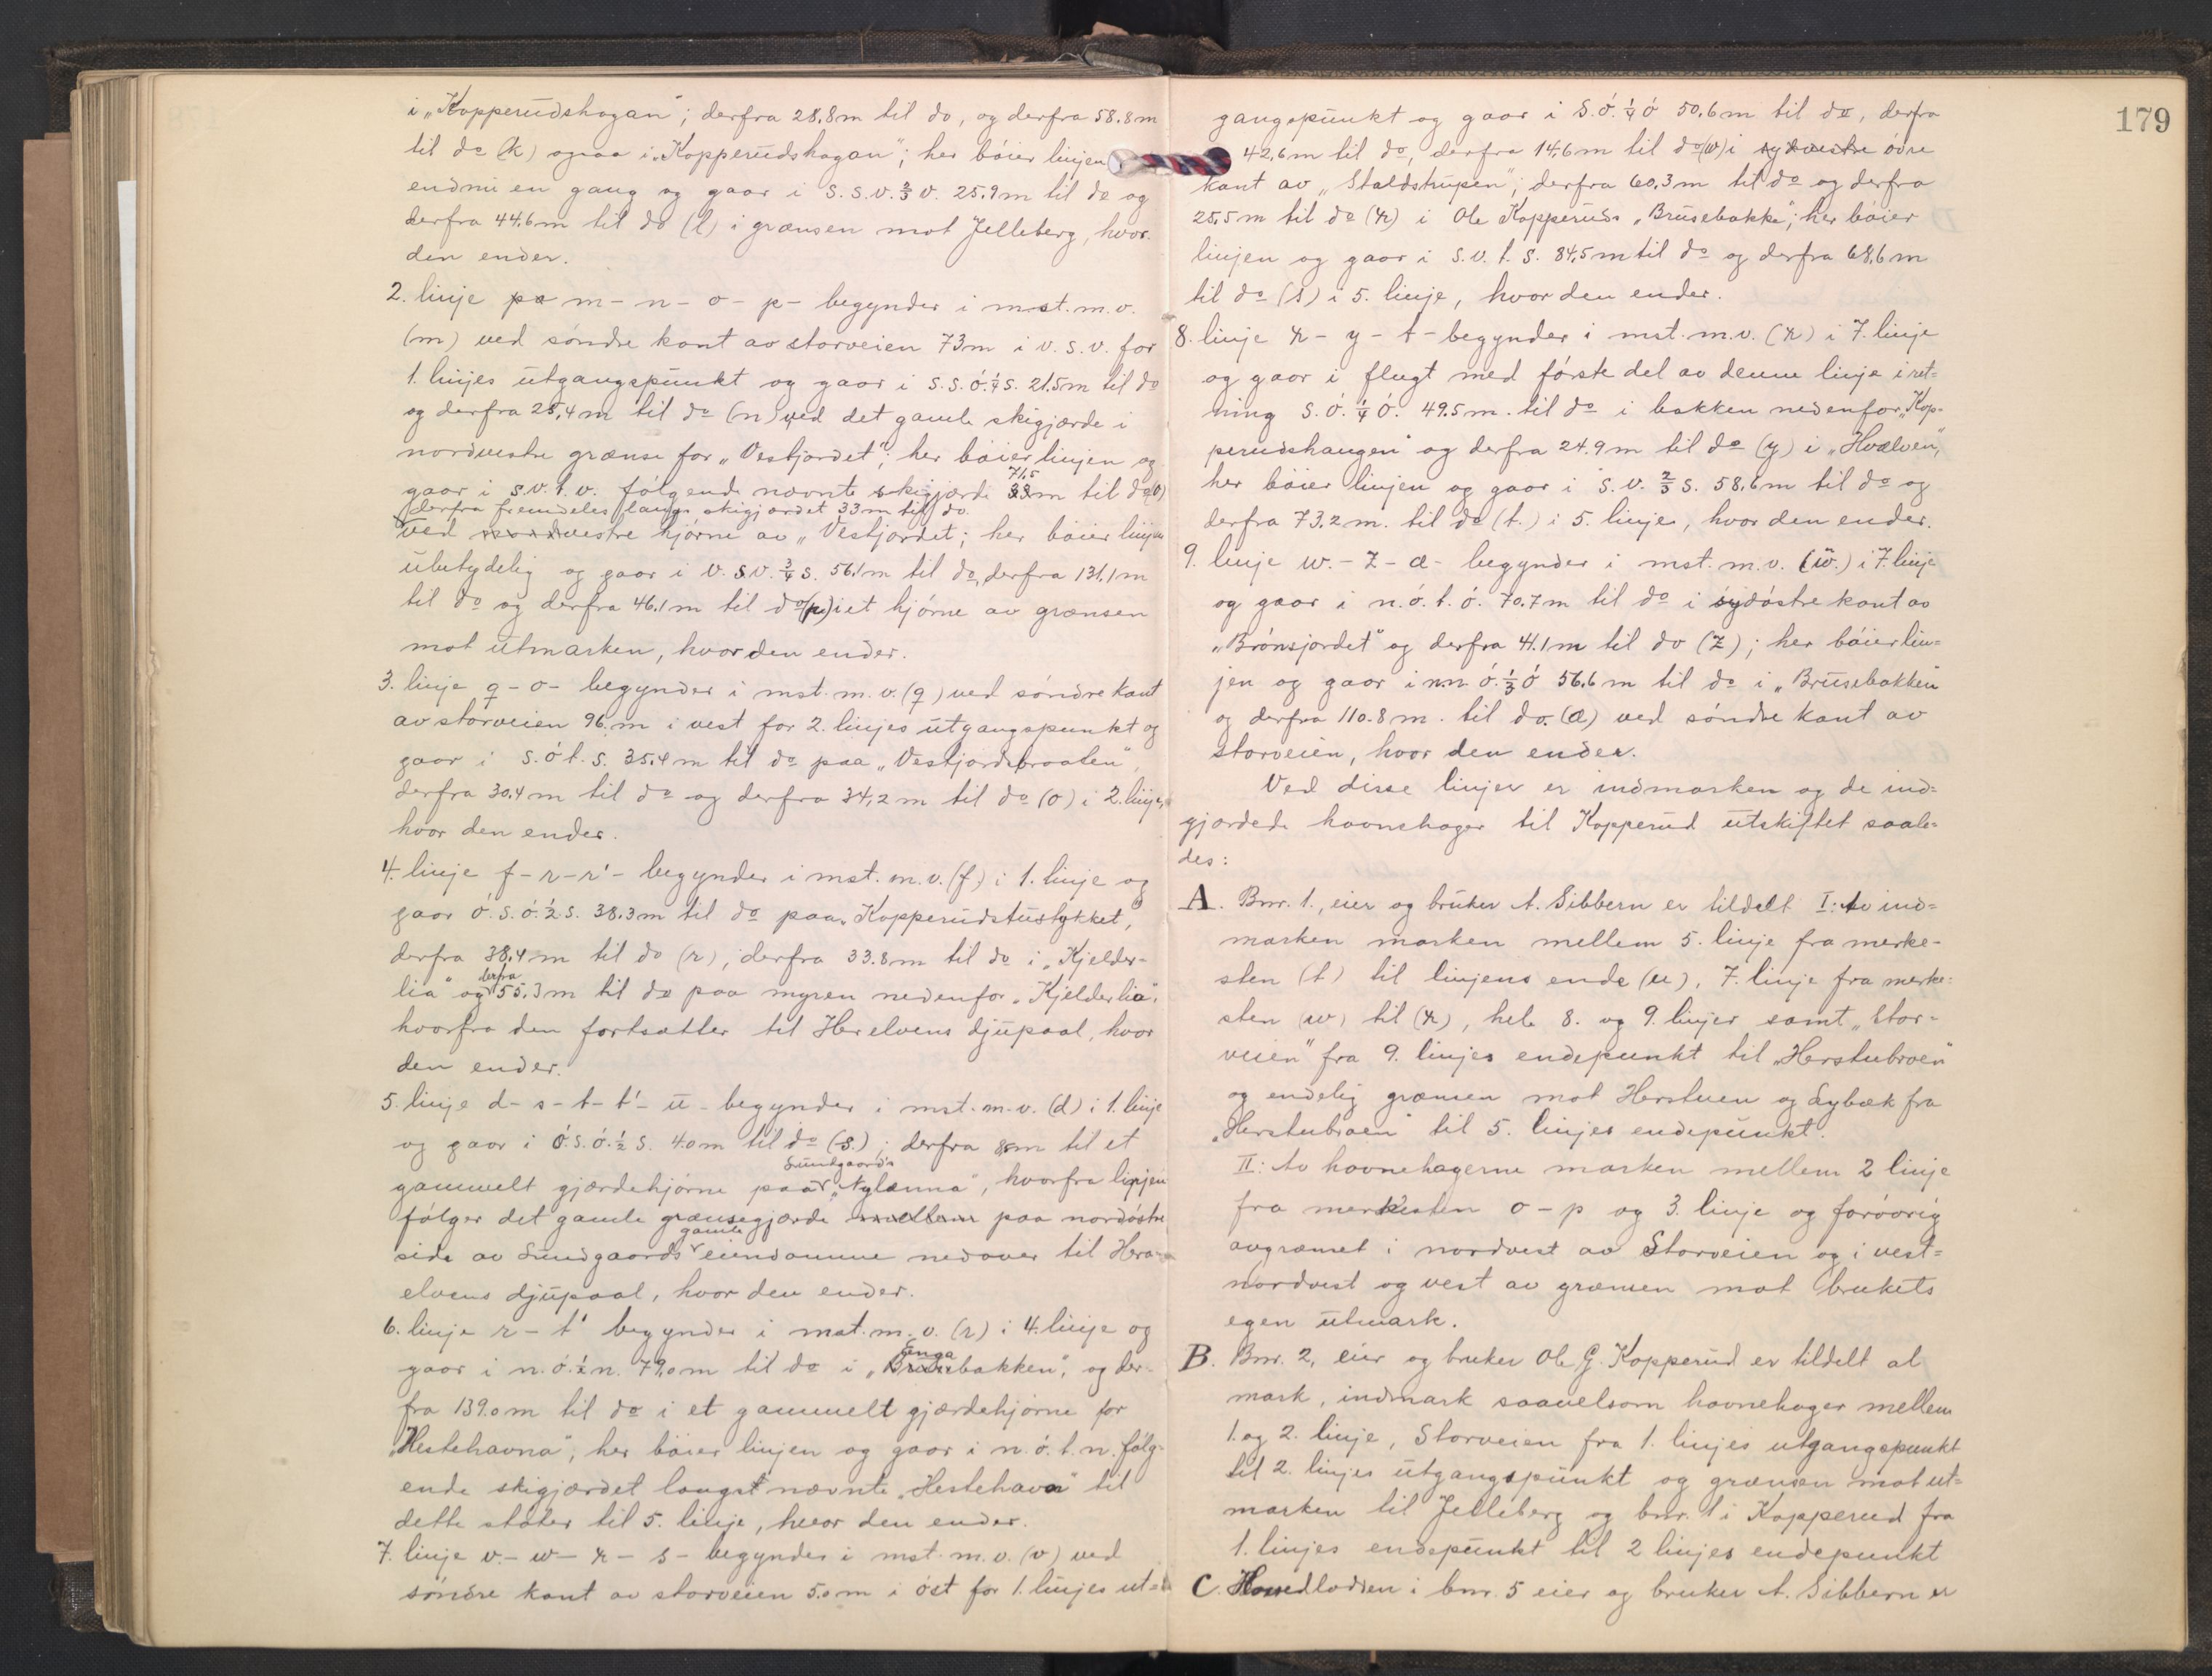 i „Kopperudshagan"; derfra 28,8m til do, og derfra 58.8m
til do (k) ogsaa i „Kopperudshagan"; her bøier linjen
endnu en gang og gaar i S.S.V.⅔V. 25.9m til do og
derfra 44,6m til do (l) i grænsen mot Jelleberg, hvor
den ender.
2. linje m-n-o-p- begynder i mst. m.v.
(m) ved søndre kant av storveien 73m i v.s.v. for
1. linjes utgangspunkt og gaar i s.s.ø.¼s. 21.5m til do
og derfra 25,4m til do (n) ved det gamle skigjærde i
nordvestre grænse for „Vesljordet"; her bøier linjen og
gaar i s.v.t.v. følgende nævnte skigjærde 71,5 m til do (o)
derfra fremdeles langs skigjærdet 33m til do
ved vestre hjørne av „Vesljordet; her bøier linjen
ubetydelig og gaar i V.S.V.¾S. 56.1m til do, derfra 131,1m
til do og derfra 46.1m til do (p) i et hjørne av grænsen
mot utmarken, hvor den ender.
3. linje q-o- begynder i mst. m.v. (q) ved søndre kant
av storveien 96.m i vest for 2. linjes utgangspunkt og
gaar i s.ø.t.s. 35.4m til do paa „Vesljordsbraaten",
derfra 30.4m til do og derfra 34,2m til do (o) i 2. linje,
hvor den ender.
4. linje f-r-r'- begynder i mst. m.v. (f.) i 1. linje og
gaar ø.s.ø.½s. 38.3m til do paa „Kopperudstustykket,"
derfra 38,4m til do (r), derfra 33.8m til do i „Kjelder-
lia" og derfra 55,3m til do paa myren nedenfor „Kjelderlia",
hvorfra den fortsætter til Herelvens djupaal, hvor
den ender.
5. linje d-s-t-t'-u- begynder i mst. m.v. (d) i 1. linje
og gaar i ø.s.ø.½s. 4.0m til do (s); derfra 8,5m til et
gammelt gjærdehjørne paa Sundgaards „Nylænna", hvorfra linjen
følger det gamle grænsegjærde paa nordøstre
side av Sundgaards gamle eiendomme nedover til Hera-
elvens djupaal, hvor den ender.
6. linje r-t' begynder i mst. m.v. (r) i 4. linje og
gaar i n.ø.½n. 79,0m til do i „Engabakken", og der-
fra 139.0m til do i et gammelt gjærdehjørne for
„Hestehavna"; her bøier linjen og gaar i n.ø.t.n. følg-
ende skigjærdet langst nævnte „Hestehavn" til
dette støter til 5. linje, hvor den ender.
7. linje v-w-x-s- begynder i mst. m.v. (v) ved
søndre kant av storveien 5.0m i øst for 1. linjes ut=
179
gangspunkt og gaar i S.Ø.¼Ø 50,6m til do, derfra
42,6m til do, derfra 14,6m til do (w) i sydvestre øvre
kant av „Staldstupen"; derfra 60,3m til do og derfra
25,5m til do (x) i Ole Kopperuds „Brusebakke"; her bøier
linjen og gaar i S.V.t.S. 84,5m til do og derfra 68,6m
til do (s) i 5. linje, hvor den ender.
8. linje x-y-t- begynder i mst. m.v. (x) i 7. linje
og gaar i flugt med første del av denne linje i ret=
ning S.Ø.¼Ø. 49.5m. til do i bakken nedenfor „Kop-
perudshaugen" og derfra 24.9m til do (y) i „Hvælven",
her bøier linjen og gaar i S.V.⅔S. 58,6m til do og
derfra 73.2m. til do (t.) i 5. linje, hvor den ender.
9. linje w.-z-æ- begynder i mst. m.v. (w.) i 7. linje
og gaar i n.ø.t.ø. 70.7m til do i sydøstre kant av
„Brønsjordet" og derfra 41.1m til do (z); her bøier lin=
jen og gaar i n.n.ø.⅓ø 56.6m til do i „Brusebakken"
og derfra 110.8m. til do. (æ) ved søndre kant av
storveien, hvor den ender.
Ved disse linjer er indmarken og de ind=
gjærdede havnehager til Kopperud utskiftet saale=
des:
A. Bnr. 1., eier og bruker A. Sibbern er tildelt I: Av ind=
marken marken mellem 5. linje fra merke-
sten (t) til linjens ende (u), 7. linje fra merke-
sten (w) til (x), hele 8. og 9. linjer samt „Stor-
veien" fra 9. linjes endepunkt til „Herstubroen"
og endelig grænsen mot Herstuen og Lybæk fra
„Herstubroen" til 5. linjes endepunkt.
II: Av havnehagerne marken mellem 2 linje
fra merkesten o-p og 3. linje og forøvrig
avgrænset i nordvest av Storveien og i vest=
nordvest og vest av grænsen mot brukets
egen utmark.
B. Bnr. 2, eier og bruker Ole G. Kopperud er tildelt al
mark, indmark saavelsom havnehager mellem
1. og 2. linje, Storveien fra 1. linjes utgangspunkt
til 2. linjes utgangspunkt og grænsen mot ut=
marken til Jelleberg og bnr. 1 i Kopperud fra
1. linjes endepunkt til 2 linjes endepunkt
C. Hovedlodden i bnr. 5 eier og bruker A. Sibbern er